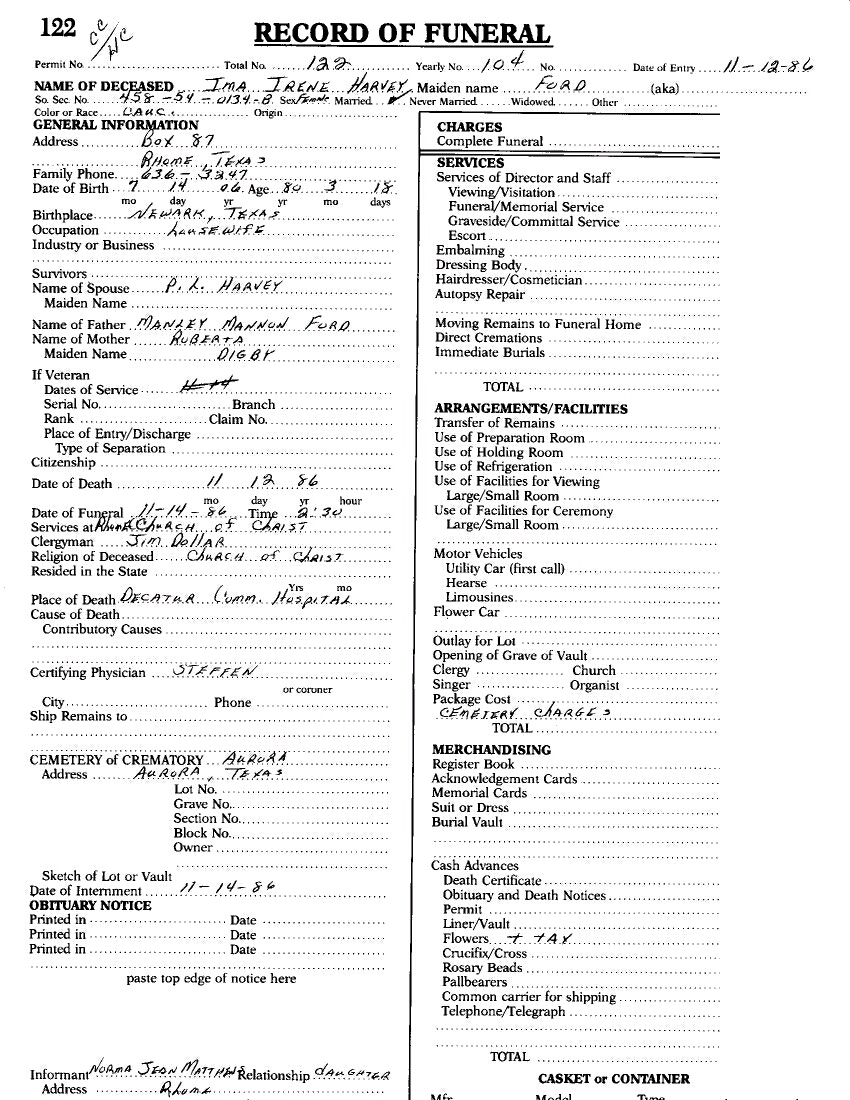 122
CC/HC
RECORD OF FUNERAL
Permit No. Total No. 122 Yearly No. 104 No. Date of Entry 11-12-86
NAME OF DECEASED IMA IRENE HARVEY Maiden name FORD (aka)
So. Sec. No. 458-54-0134-B Sex Female Married Never Married Widowed Other
Color or Race CAUC. Origin
GENERAL INFORMATION
Address BOX 87
RHOME, TEXAS
Family Phone 636-3347
Date of Birth 7 14 06 Age 80 3 18
mo day yr yr mo days
Birthplace NEWARK, TEXAS
Occupation HOUSEWIFE
Industry or Business
Survivors
Name of Spouse P. L. HARVEY
Maiden Name
Name of Father MANLEY MANNON FORD
Name of Mother ROBERTA
Maiden Name DIGBY
If Veteran
Dates of Service
Serial No. Branch
Rank Claim No.
Place of Entry/Discharge
Type of Separation
Citizenship
Date of Death 11 12 86
mo day yr hour
Date of Funeral 11-14-86 Time 2:30
Services at Rhome CHURCH of CHRIST
Clergyman JIM DOLLAR
Religion of Deceased CHURCH of CHRIST
Resided in the State
Yrs mo
Place of Death DECATUR COMM. HOSPITAL
Cause of Death
Contributory Causes
Certifying Physician STEFFEN
or coroner
City Phone
Ship Remains to
CEMETERY of CREMATORY AURORA
Address AURORA, TEXAS
Lot No.
Grave No.
Section No.
Block No.
Owner
Sketch of Lot or Vault
Date of Internment 11-14-86
OBITUARY NOTICE
Printed in Date
Printed in Date
Printed in Date
paste top edge of notice here
Informant NORMA JEAN MATTHEWS Relationship DAUGHTER
Address Rhome
CHARGES
Complete Funeral
SERVICES
Services of Director and Staff
Viewing/Visitation
Funeral/Memorial Service
Graveside/Committal Service
Escort
Embalming
Dressing Body
Hairdresser/Cosmetician
Autopsy Repair
Moving Remains to Funeral Home
Direct Cremations
Immediate Burials
TOTAL
ARRANGEMENTS/FACILITIES
Transfer of Remains
Use of Preparation Room
Use of Holding Room
Use of Refrigeration
Use of Facilities for Viewing
Large/Small Room
Use of Facilities for Ceremony
Large/Small Room
Motor Vehicles
Utility Car (first call)
Hearse
Limousines
Flower Car
Outlay for Lot
Opening of Grave of Vault
Clergy Church
Singer Organist
Package Cost
CEMETERY CHARGES
TOTAL
MERCHANDISING
Register Book
Acknowledgement Cards
Memorial Cards
Suit or Dress
Burial Vault
Cash Advances
Death Certificate
Obituary and Death Notices
Permit
Liner/Vault
Flowers + TAX
Crucifix/Cross
Rosary Beads
Pallbearers
Common carrier for shipping
Telephone/Telegraph
TOTAL
CASKET or CONTAINER
Mfr. Model Type